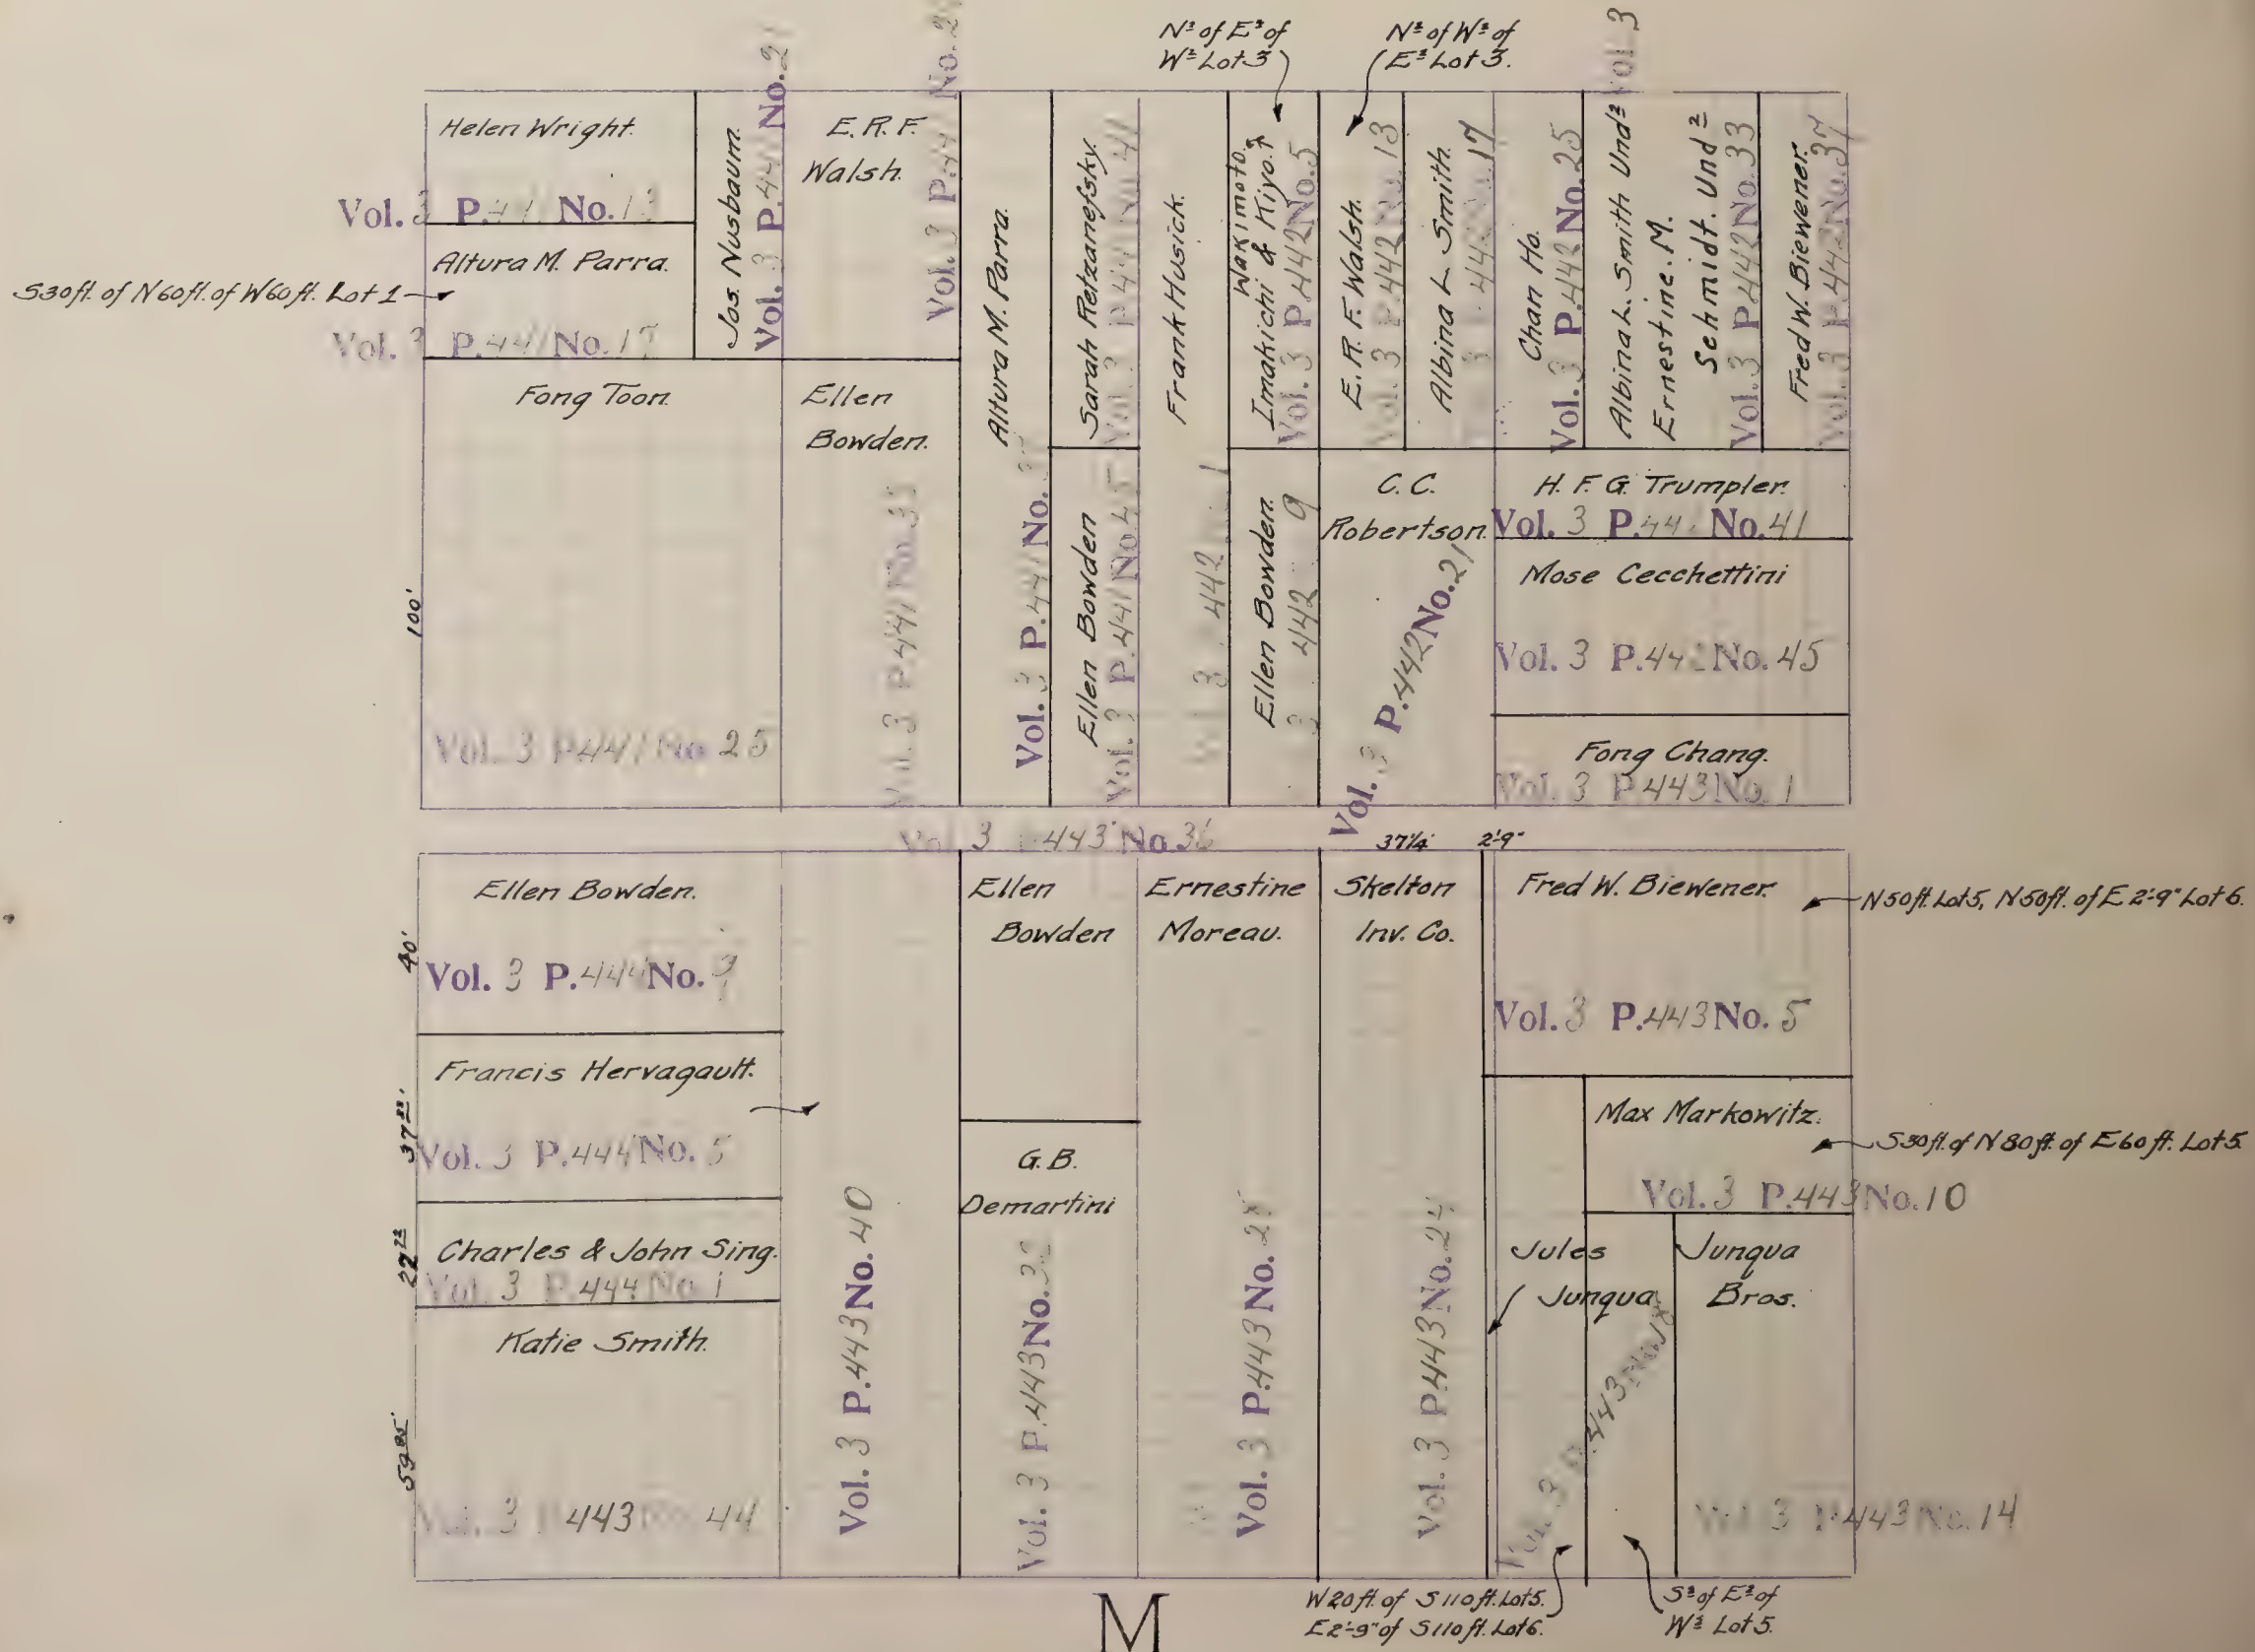 N½ of E½ of
W½ Lot 3
N½ of W½ of
E½ Lot 3.
Helen Wright.
Vol. 3 P. No.
Altura M. Parra.
S30ft. of N60ft. of W60ft. Lot 1
Vol. 3 P.441 No.17
Jos. Nusbaum.
Vol. 3 P.441 No.21
E.R.F.
Walsh.
Vol. 3 P.441 No.
Fong Toon.
Vol. 3 P.441 No 25
100'
Ellen
Bowden.
Vol. 3 P.441 No.33
Altura M. Parra.
Vol. 3 P.441 No.
Sarah Retzanefsky.
Vol. 3 P.441 No.41
Ellen Bowden
Vol. 3 P.441 No.45
Frank Husick.
3 442 1
Wakimoto.
Imakichi & Kiyo.
Vol. 3 P.442 No.5
Ellen Bowden.
3 442 9
E.R.F. Walsh.
Vol. 3 P.442 No.13
Albina L Smith.
3 442 17
C.C.
Robertson.
Vol. 3 P.442 No.21
Chan Ho.
Vol. 3 P.442 No.25
Vol. 3
Albina L. Smith Und½
Ernestine. M.
Schmidt. Und ½
Vol. 3 P.442 No.33
Fred W. Biewener.
Vol. 3 P.442 No.37
H. F. G. Trumpler.
Vol. 3 P.44 No.41
Mose Cecchettini
Vol. 3 P.442 No.45
Fong Chang.
Vol. 3 P.443 No. 1
Vol 3 443 No.36
37¼' 2'-9"
Ellen Bowden.
Vol. 3 P.444 No. 9
40'
Francis Hervagault.
Vol. 3 P.444 No. 5
Charles & John Sing.
Vol. 3 P.444 No 1
Katie Smith.
Vol. 3 443 No. 44
Vol. 3 P.443 No. 40
Ellen
Bowden
G.B.
Demartini
Vol. 3 P.443 No.32
Ernestine
Moreau.
Vol. 3 P.443 No.28
Skelton
Inv. Co.
Vol. 3 P.443 No.24
Fred W. Biewener.
N50ft. Lot 5, N50ft. of E 2'-9" Lot 6.
Vol. 3 P.443 No. 5
Max Markowitz.
S30ft. of N80ft. of E60ft. Lot 5
Vol. 3 P.443 No.10
Jules
Junqua
Vol. 3 P.443 No.18
Junqua
Bros.
Vol 3 P.443 No.14
W20ft. of S110ft. Lot 5.
E2'-9" of S110ft. Lot 6.
S½ of E½ of
W½ Lot 5.
M